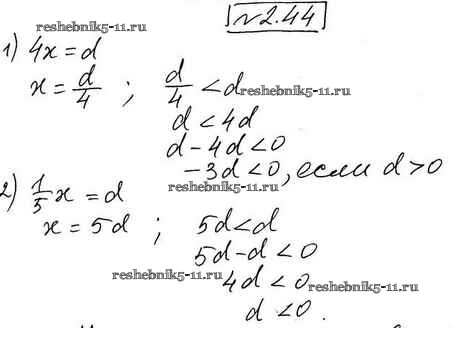 №2.44
reshebnik5-11.ru
1) 4x = d
x = d/4 ; d/4 < d
reshebnik5-11.ru
d < 4d
d - 4d < 0
-3d < 0, если d > 0
reshebnik5-11.ru
2) 1/5 x = d
x = 5d ; 5d < d
5d - d < 0
reshebnik5-11.ru
4d < 0
reshebnik5-11.ru
d < 0.